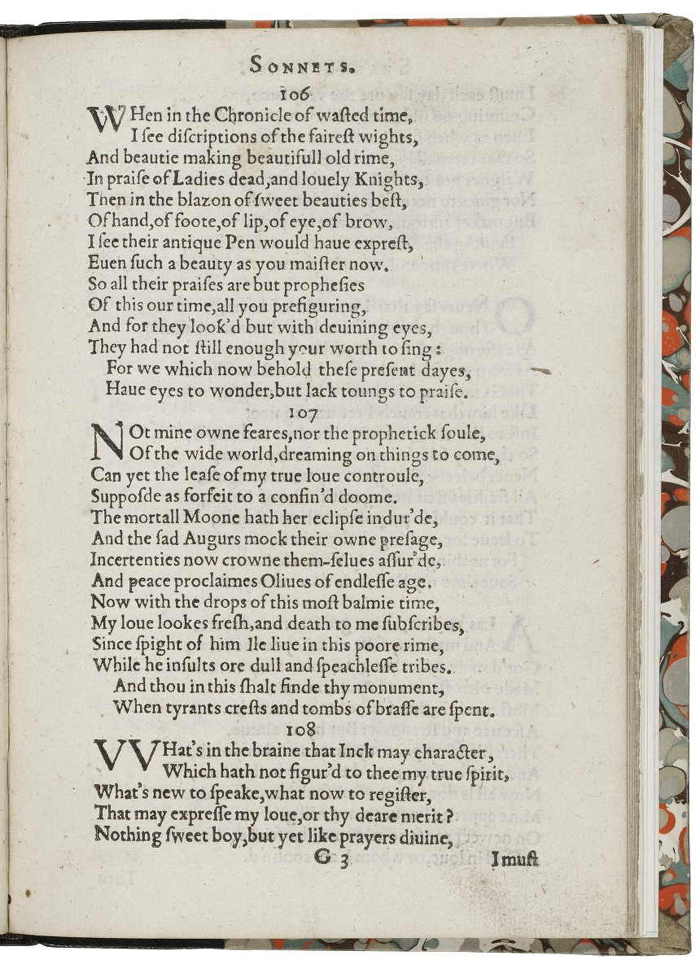 SONNETS.
106
WHen in the Chronicle of wasted time,
I see discriptions of the fairest wights,
And beautie making beautifull old rime,
In praise of Ladies dead,and louely Knights,
Then in the blazon of sweet beauties best,
Of hand,of foote,of lip,of eye,of brow,
I see their antique Pen would haue exprest,
Euen such a beauty as you maister now.
So all their praises are but prophesies
Of this our time,all you prefiguring,
And for they look'd but with deuining eyes,
They had not still enough your worth to sing:
For we which now behold these present dayes,
Haue eyes to wonder,but lack toungs to praise.
107
NOt mine owne feares,nor the prophetick soule,
Of the wide world,dreaming on things to come,
Can yet the lease of my true loue controule,
Supposde as forfeit to a confin'd doome.
The mortall Moone hath her eclipse indur'de,
And the sad Augurs mock their owne presage,
Incertenties now crowne them-selues assur'de,
And peace proclaimes Oliues of endlesse age.
Now with the drops of this most balmie time,
My loue lookes fresh,and death to me subscribes,
Since spight of him Ile liue in this poore rime,
While he insults ore dull and speachlesse tribes.
And thou in this shalt finde thy monument,
When tyrants crests and tombs of brasse are spent.
108
VVHat's in the braine that Inck may character,
Which hath not figur'd to thee my true spirit,
What's new to speake,what now to register,
That may expresse my loue,or thy deare merit?
Nothing sweet boy,but yet like prayers diuine,
G 3 I must